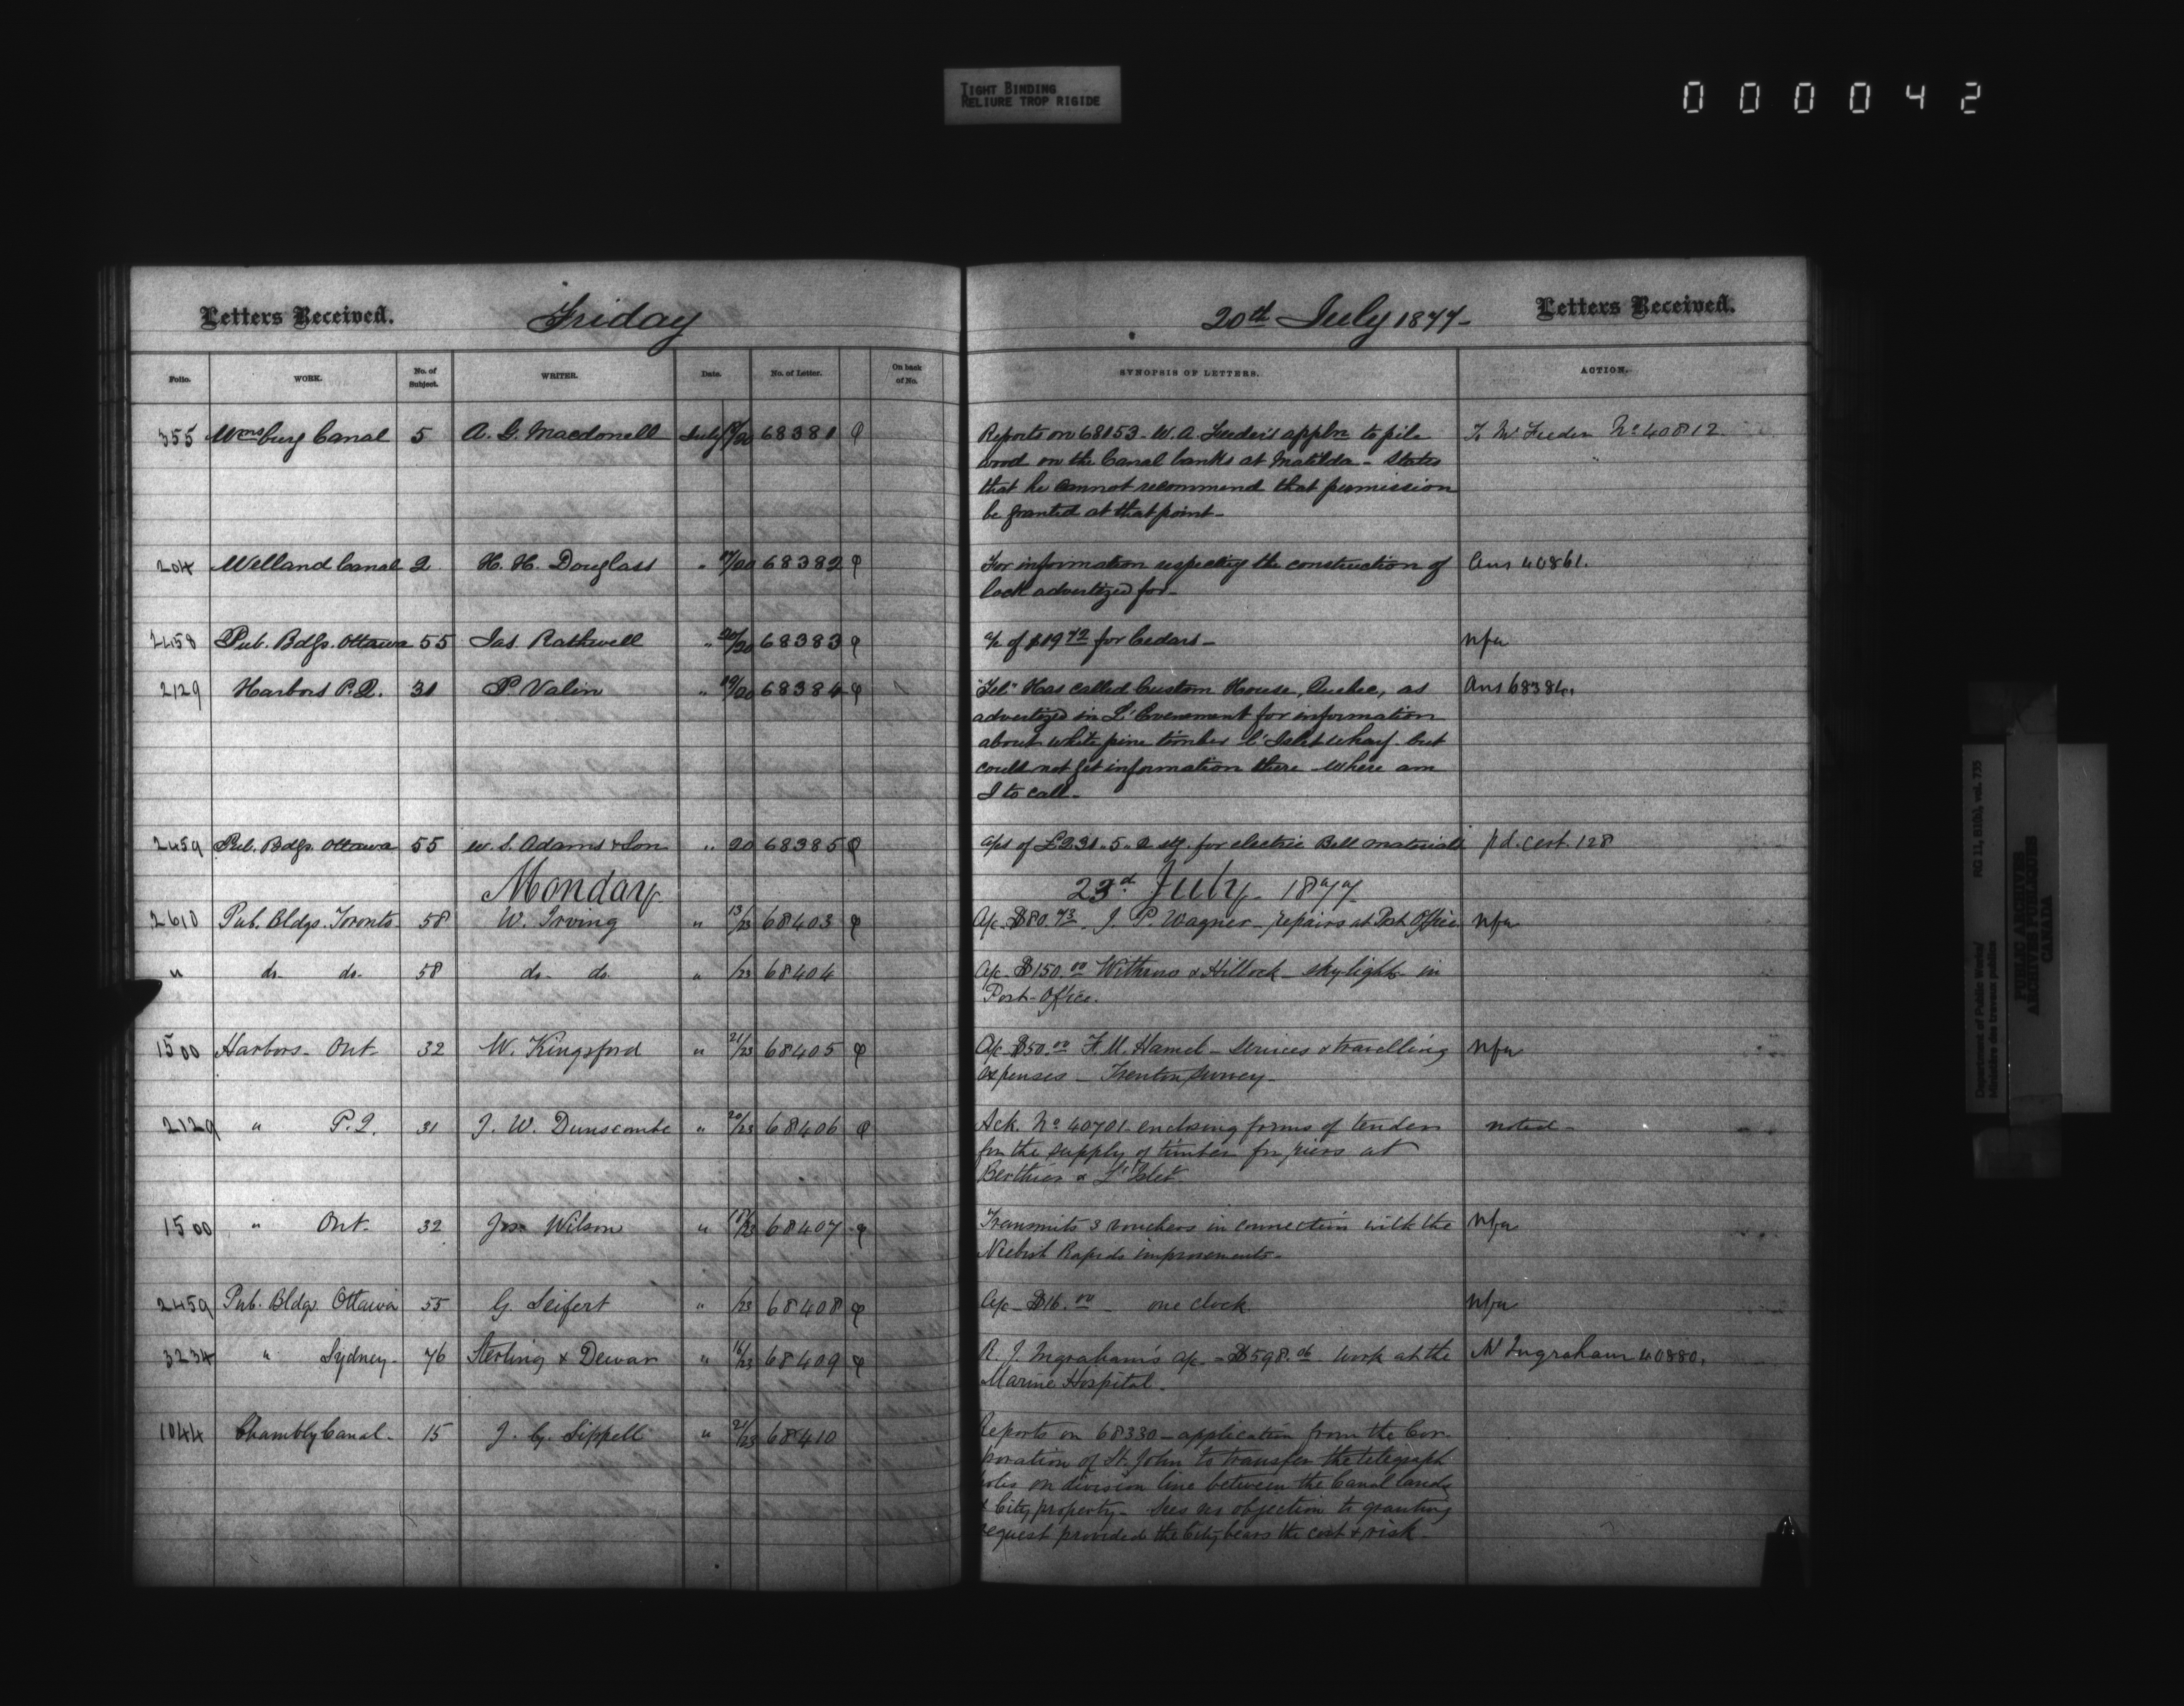 TIGHT BINDING
RELIURE TROP RIGIDE
000042
Letters Received. Friday 20th July 1877- Letters Received.
Folio. WORK. No. of Subject. WRITER. Date. No. of Letter. On back of No. SYNOPSIS OF LETTERS. ACTION.
355 Wmsburg Canal 5 A. G. Macdonell July /20 68381 Reports on 68153. W. A. Feeder's appln to pile To W Feeder No 40812
wood on the Canal banks at Matilda - States
that he cannot recommend that permission
be granted at that point-
204 Welland Canal 2 H. H. Douglass " 17/20 68382 For information respecting the construction of Ans 40861.
lock advertized for-
2458 Pub. Bdgs. Ottawa 55 Jas. Rathwell " 20/20 68383 a/c of $19 72 for Cedars- nfa
2129 Harbors P.Q. 31 P Valin " 19/20 68384 "Tel" Has called Custom House, Quebec, as Ans 68384.
advertized in L'Evenement for information
about white pine timber L'Islet Wharf. but
could not get information there - Where am
I to call-
2459 Pub. Bdgs. Ottawa 55 W. S. Adams & Son " 20 68385 a/cs of £231.5.2 stg. for electric Bell materials pd. cert. 128
Monday 23d July 1877
2610 Pub. Bldgs. Toronto- 58 W. Irving " 13/23 68403 A/c $80.73. J. P. Wagner- repairs at Post Office nfa
" do- do- 58 do- do- " /23 68404 A/c $150.00 Withrow & Hillock- sky-lights in
Post-Office.
1500 Harbors- Ont- 32 W. Kingsford " 21/23 68405 A/c $50.00 F. M. Hamel- Services & travelling nfa
expenses - Trenton survey-
2129 " P.Q. 31 J. W. Dunscombe " 20/23 68406 Ack. No 40701. enclosing forms of tender noted-
for the supply of timber for piers at
Berthier & L'Islet-
1500 " Ont- 32 Jos Wilson " /23 68407 Transmits 3 vouchers in connection with the nfa
Neebish Rapids improvements-
2459 Pub. Bldgs. Ottawa 55 G. Seifert " /23 68408 A/c $16.00 - one clock nfa
3234 " Sydney- 76 Sterling & Dewar " 16/23 68409 R. J. Ingraham's a/c - $598.06 Work at the M Ingraham 40880.
Marine Hospital.
1044 Chambly Canal- 15 J. G. Sippell " 21/23 68410 Reports on 68330 - application from the Cor-
poration of St. John to transfer the telegraph
poles on division line between the Canal lands
& City property- Sees no objection to granting
request provided the City bears the cost & risk-
Department of Public Works/
Ministère des travaux publics
RG 11, B1(b), vol. 735
PUBLIC ARCHIVES
ARCHIVES PUBLIQUES
CANADA